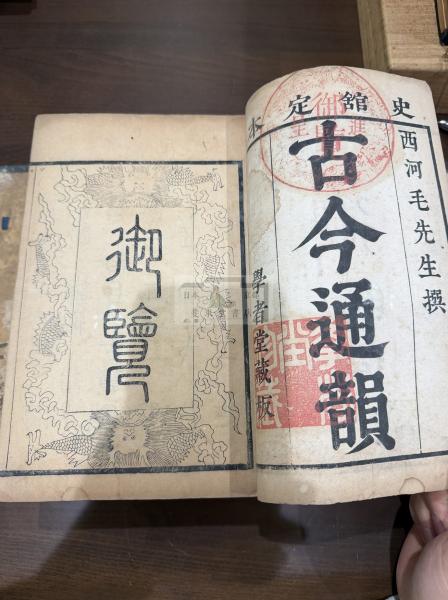 史舘定本
西河毛先生撰
古今通韻
學者堂藏板
御覽